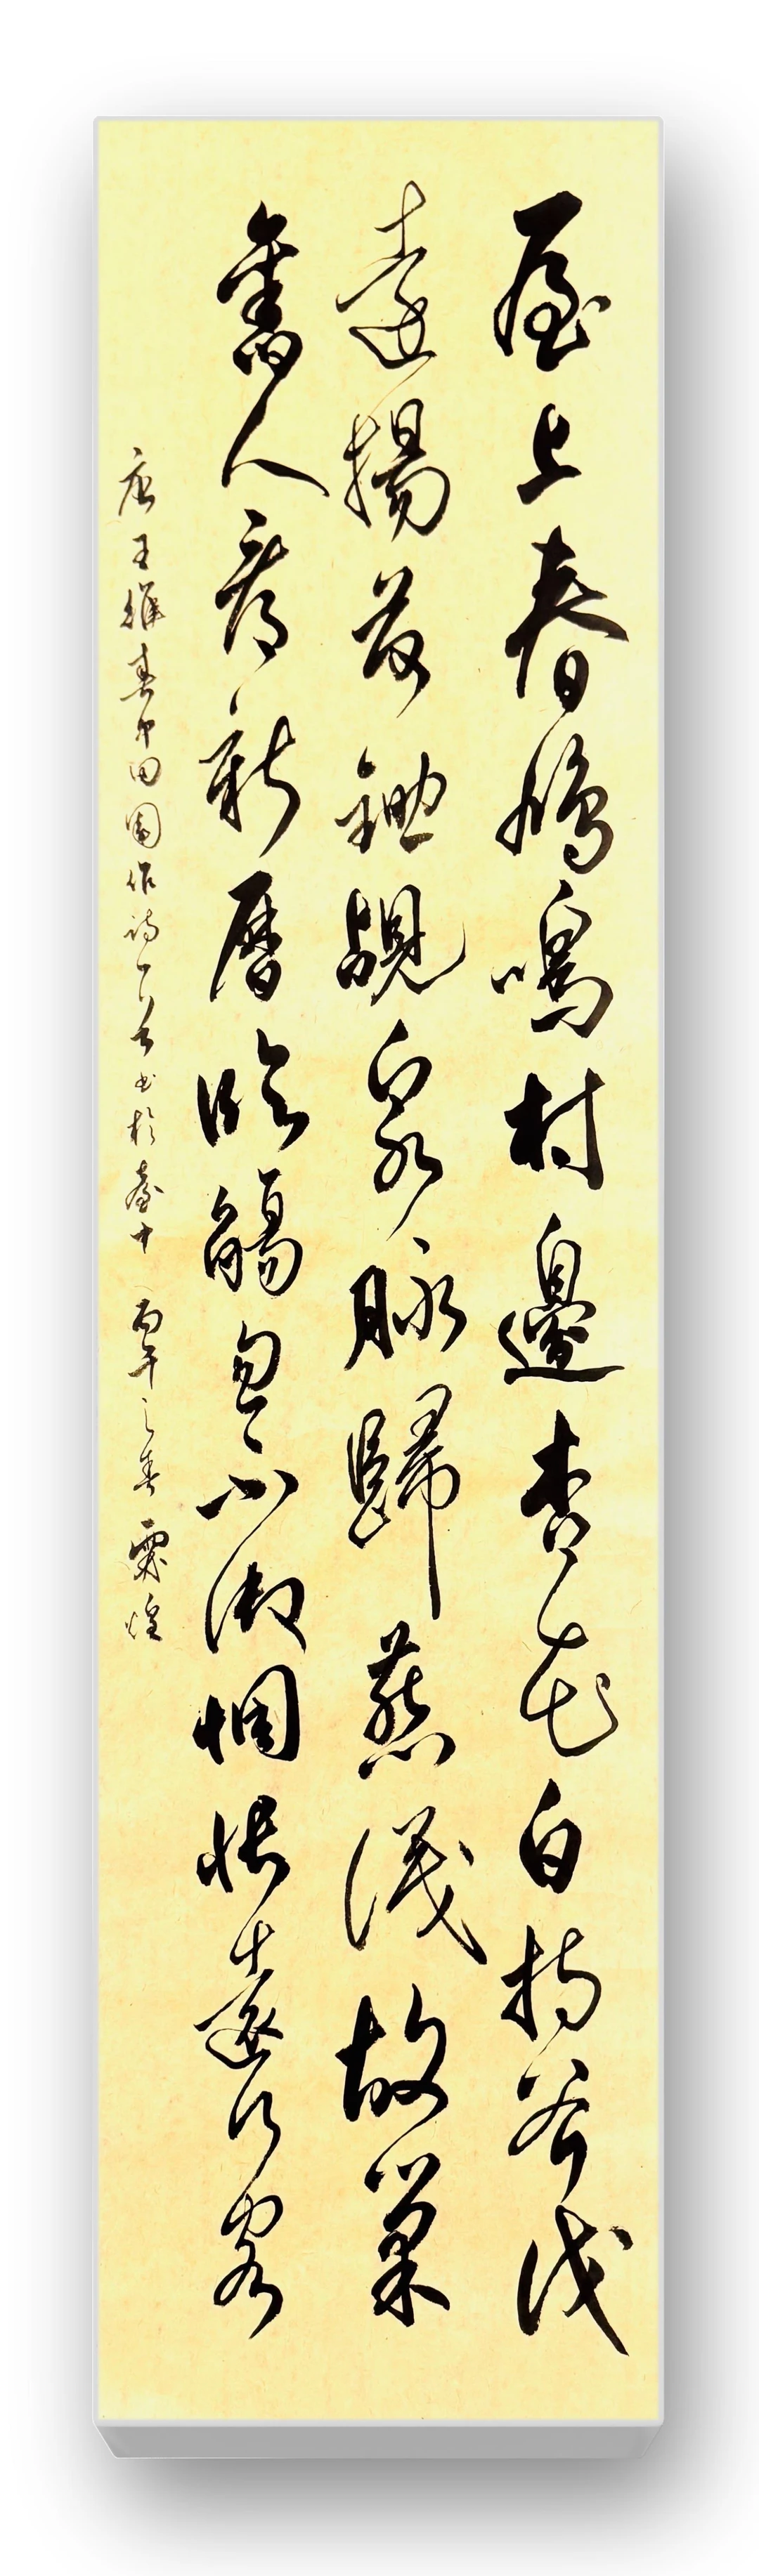 屋上春鳩鳴村邊杏花白持斧伐
遠揚荷鋤覘泉脉歸燕識故巢
舊人看新曆臨觴忽不御惆悵遠行客
唐王維春中田園作詩一首書於臺中 丙午之春 霖煌